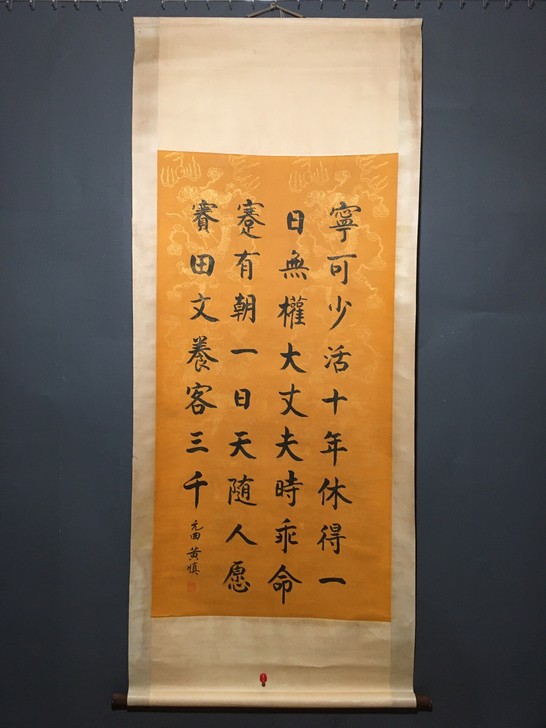 寧可少活十年休得一
日無權大丈夫時乖命
蹇有朝一日天隨人愿
賽田文養客三千
元田黄慎